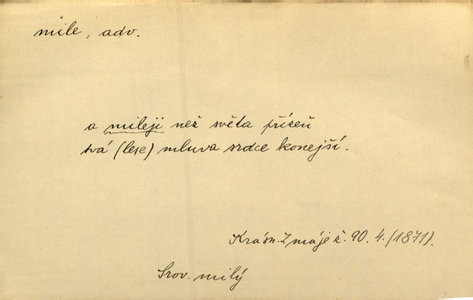 mile, adv.
a mileji než světa přízeň
tvá (lese) mluva srdce konejší.
Krásn. Z máje č. 90. 4. (1871).
Srov. milý